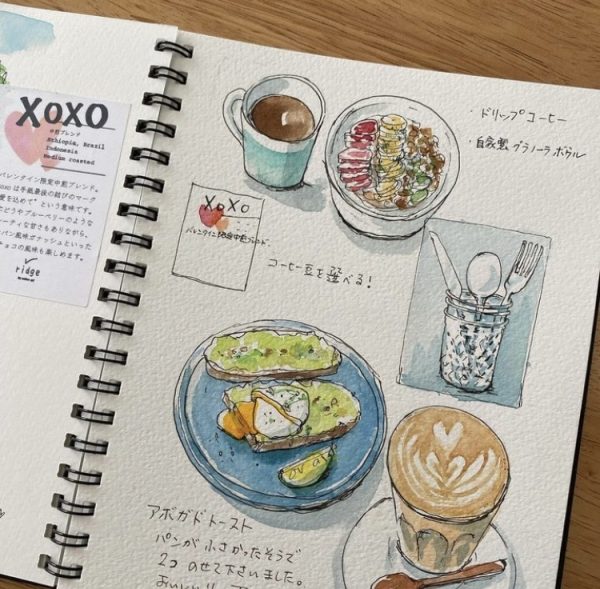 XOXO
中煎ブレンド
Ethiopia, Brazil
Indonesia
Medium roasted
バレンタイン限定中煎ブレンド。
xoxoは手紙最後の結びのマーク
愛を込めて"という意味です。
ぶどうやブルーベリーのような
ーティな甘さもありながら、
パン風味ガナッシュといった
チョコの風味も楽しめます。
ridge
ドリップコーヒー
・自家製グラノーラボウル
XoXo
バレンタイン限定中煎ブレンド
コーヒー豆を選べる!
アボカドトースト
パンが小さかったそうで
2つのせて下さいました。